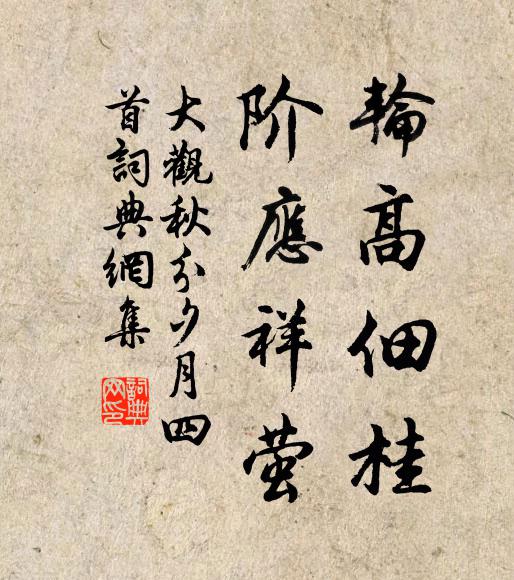 輪高佃桂
阶應祥萤
大觀秋分夕月四
首詞典網集
詞典
网印